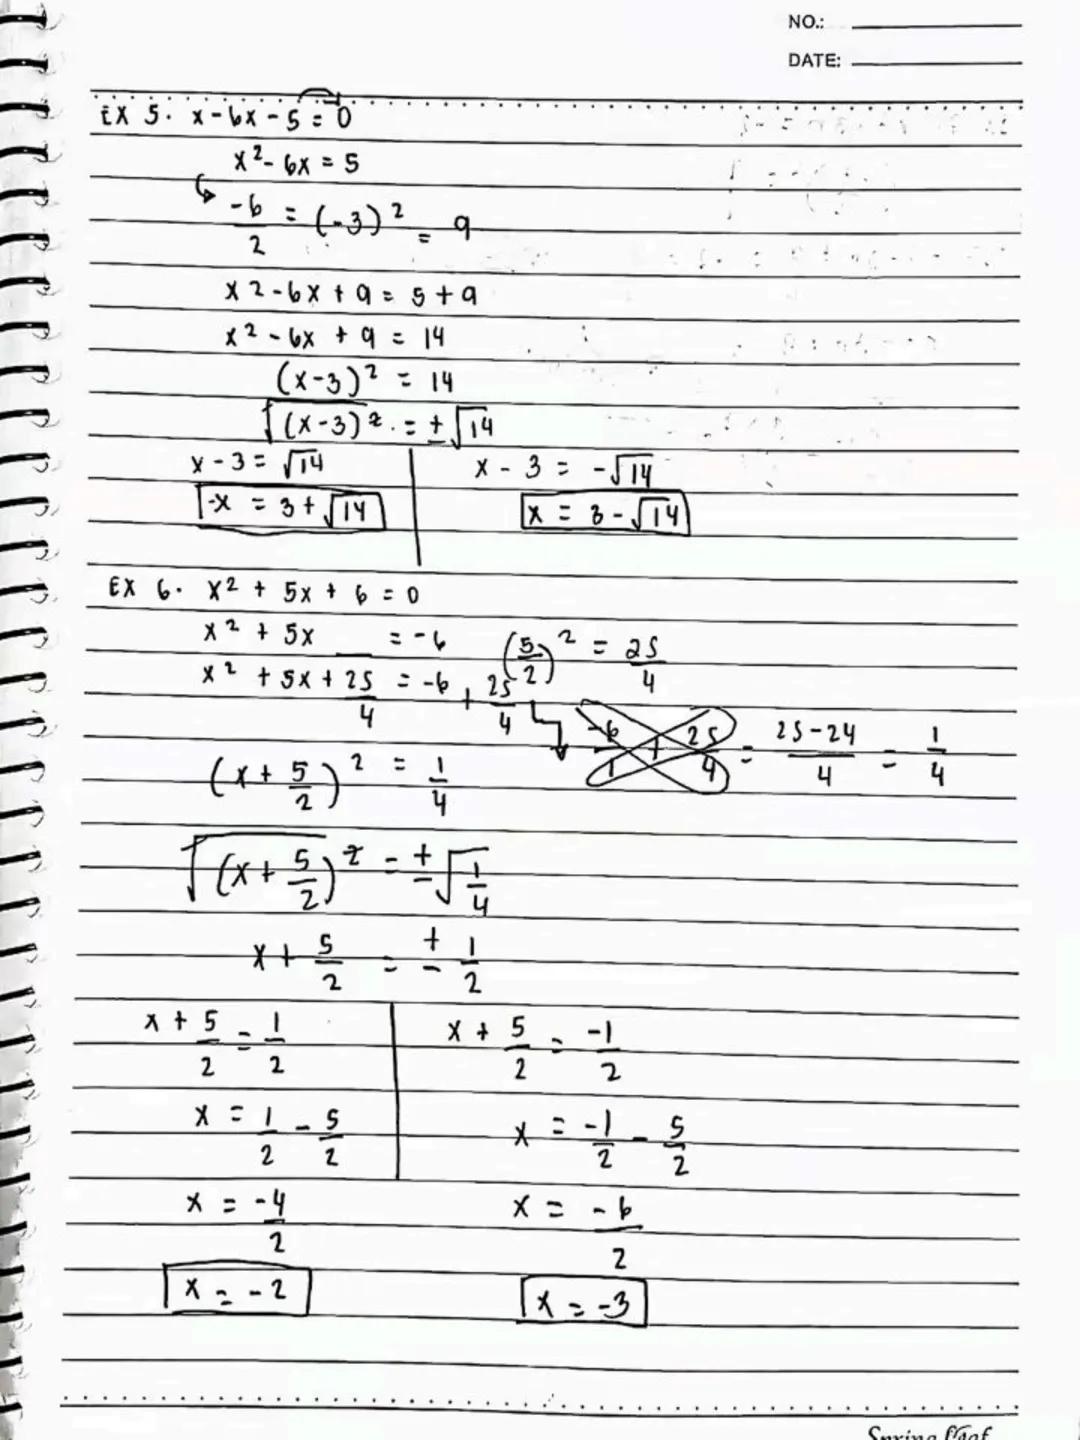 NO.:
DATE:
EX 5. x - 6x - 5 = 0
x² - 6x = 5
-6/2 = (-3)² = 9
x² - 6x + 9 = 5 + 9
x² - 6x + 9 = 14
(x - 3)² = 14
√(x - 3)² = ± √14
x - 3 = √14
x - 3 = -√14
-x = 3 + √14
x = 3 - √14
EX 6. x² + 5x + 6 = 0
x² + 5x __ = -6 (5/2)² = 25/4
x² + 5x + 25/4 = -6 + 25/4
-6/1 1 25/4 = 25-24/4 = 1/4
(x + 5/2)² = 1/4
√(x + 5/2)² = ± √1/4
x + 5/2 = ± 1/2
x + 5/2 = 1/2
x + 5/2 = -1/2
x = 1/2 - 5/2
x = -1/2 - 5/2
x = -4/2
x = -6/2
x = -2
x = -3
Spring Leaf